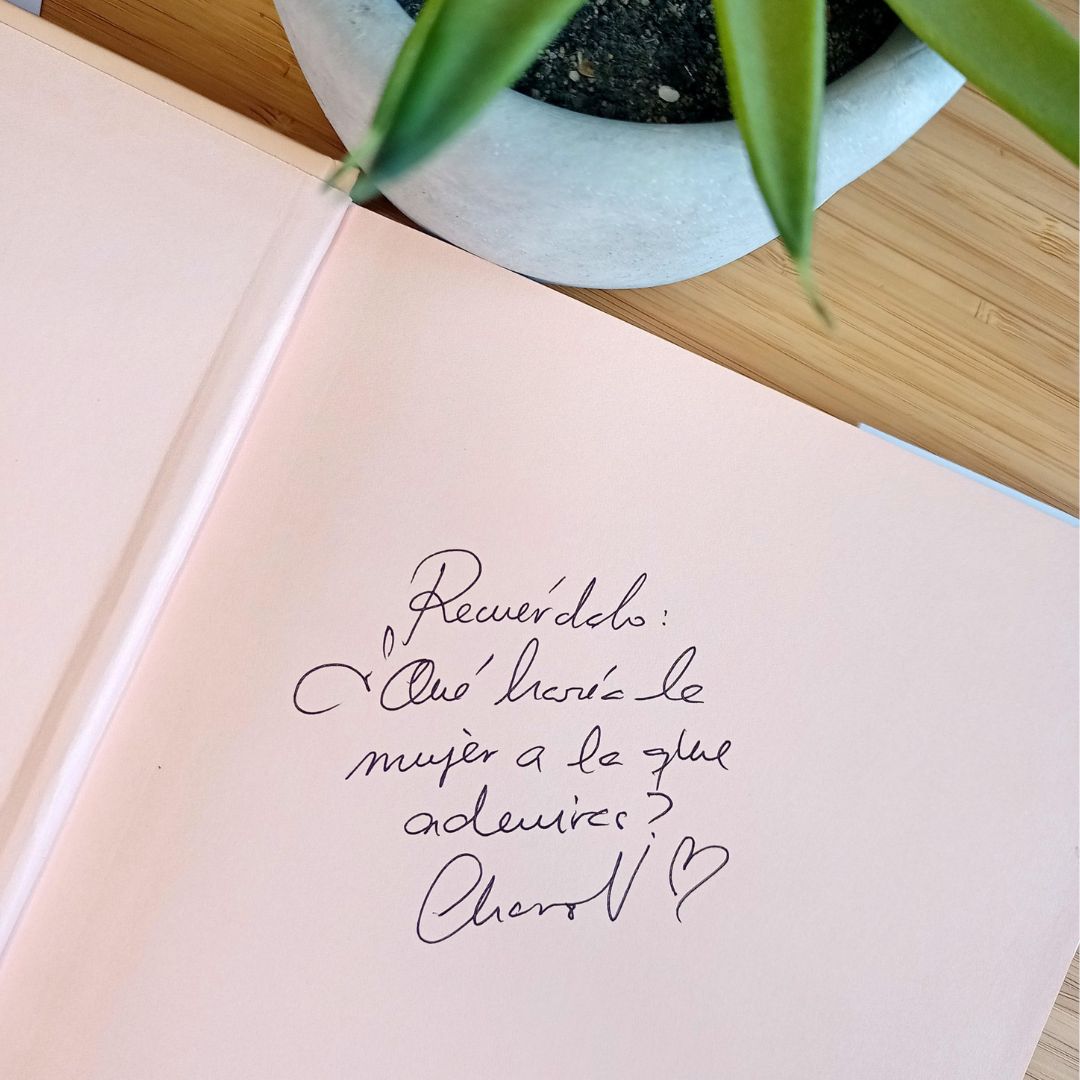 Recuérdalo:
¿Qué haría la
mujer a la que
admiras?
Charo V.